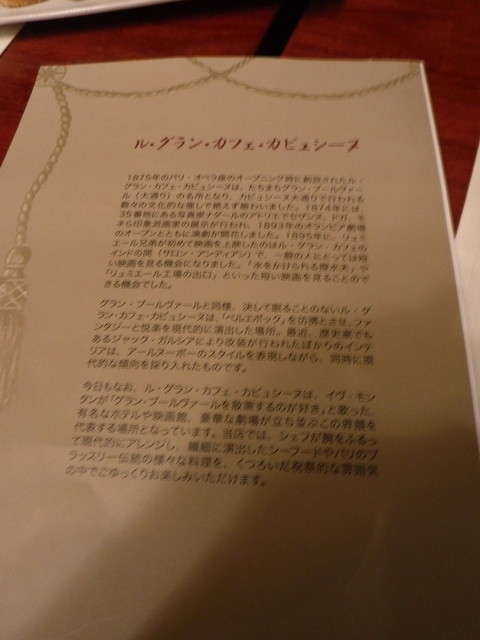 ル・グラン・カフェ・カピュシーヌ
1875年のパリ・オペラ座のオープニング時に創設されたル・
グラン・カフェ・カピュシーヌは、たちまちグラン・ブールヴァー
ル(大通り)の名所となり、カピュシーヌ大通りで行われる
数々の文化的な催しで絶えず賑わいました。1874年には、
35番地にある写真家ナダールのアトリエでセザンヌ、ドガ、モ
ネら印象派画家の展示が行われ、1893年のオランピア劇場
のオープンとともに演劇が開花しました。1895年に、リュミ
エール兄弟が初めて映画を上映したのはル・グラン・カフェの
インドの間(サロン・アンディアン)で、一般の人にとっては短
い映画を見る機会になりました。「水をかけられる撒水夫」や
「リュミエール工場の出口」といった短い映画を見ることのでき
る機会でした。
グラン・ブールヴァールと同様、決して眠ることのないル・グ
ラン・カフェ・カピュシーヌは、「ベルエポック」を彷彿とさせ、ファ
ンタジーと悦楽を現代的に演出した場所。最近、歴史家でも
あるジャック・ガルシアにより改装が行われたばかりのインテ
リアは、アールヌーボーのスタイルを表現しながら、同時に現
代的な傾向を採り入れたものです。
今日もなお、ル・グラン・カフェ・カピュシーヌは、イヴ・モン
タンが「グラン・ブールヴァールを散策するのが好き」と歌った、
有名なホテルや映画館、豪華な劇場が立ち並ぶこの界隈を
代表する場所となっています。当店では、シェフが腕をふるっ
て現代的にアレンジし、繊細に演出したシーフードやパリのブ
ラッスリー伝統の様々な料理を、くつろいだ祝祭的な雰囲気
の中でごゆっくりお楽しみいただけます。